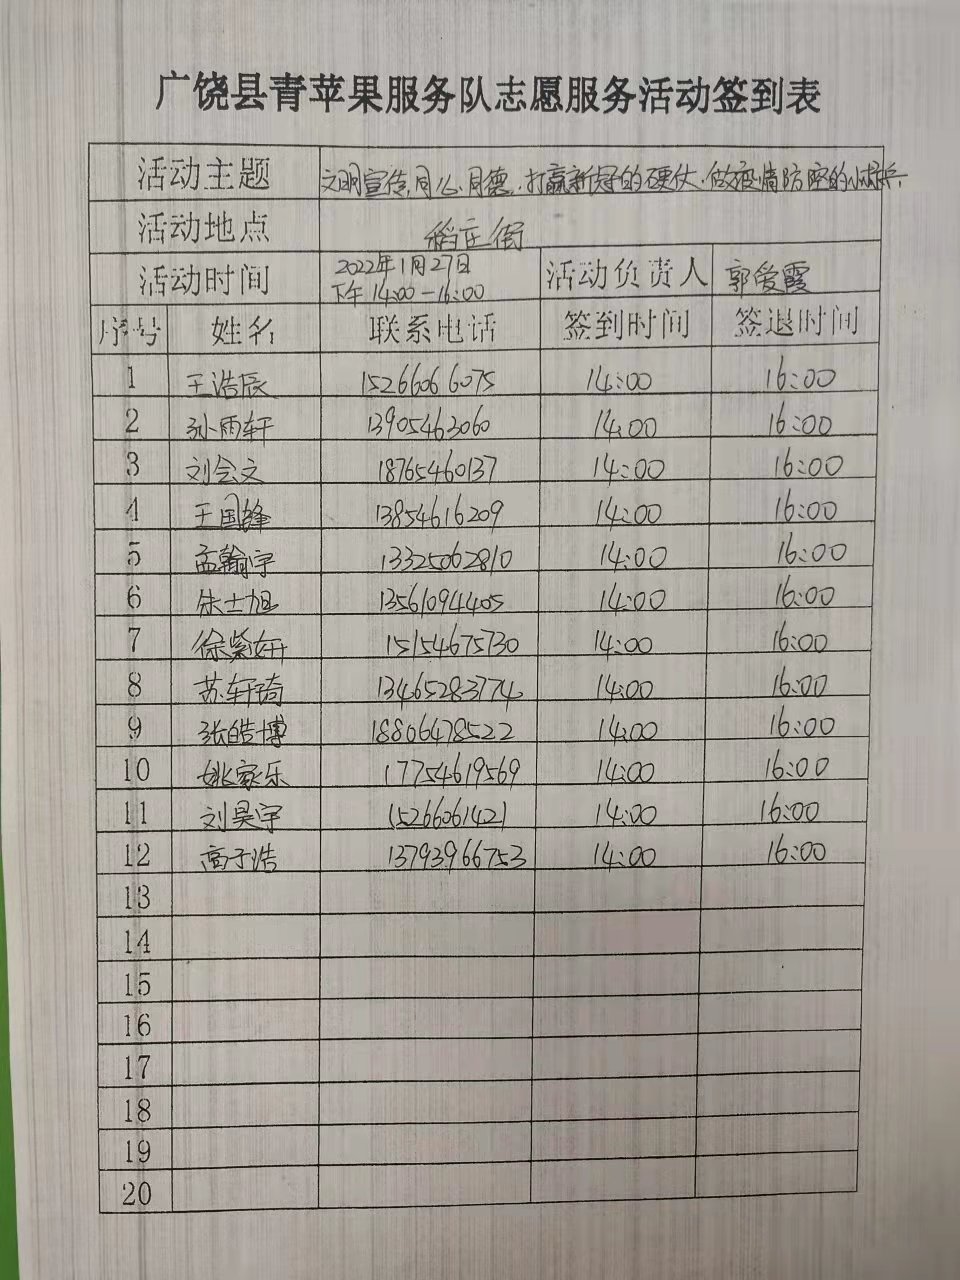 广饶县青苹果服务队志愿服务活动签到表
活动主题 文明宣传,同心同德,打赢新冠的硬仗,做疫情防控的小哨兵
活动地点 稻庄街
活动时间 2022年1月27日 下午14:00-16:00 活动负责人 郭爱霞
序号 姓名 联系电话 签到时间 签退时间
1 王浩辰 15266066075 14:00 16:00
2 孙雨轩 13905463060 14:00 16:00
3 刘会文 18765460137 14:00 16:00
4 王国锋 13854616209 14:00 16:00
5 孟翰宇 13325062810 14:00 16:00
6 朱士旭 13561094405 14:00 16:00
7 徐紫妍 15154675730 14:00 16:00
8 苏轩琦 13465283774 14:00 16:00
9 张皓博 18806478522 14:00 16:00
10 姚家乐 17754619569 14:00 16:00
11 刘昊宇 15266061421 14:00 16:00
12 高子浩 13793966753 14:00 16:00
13
14
15
16
17
18
19
20